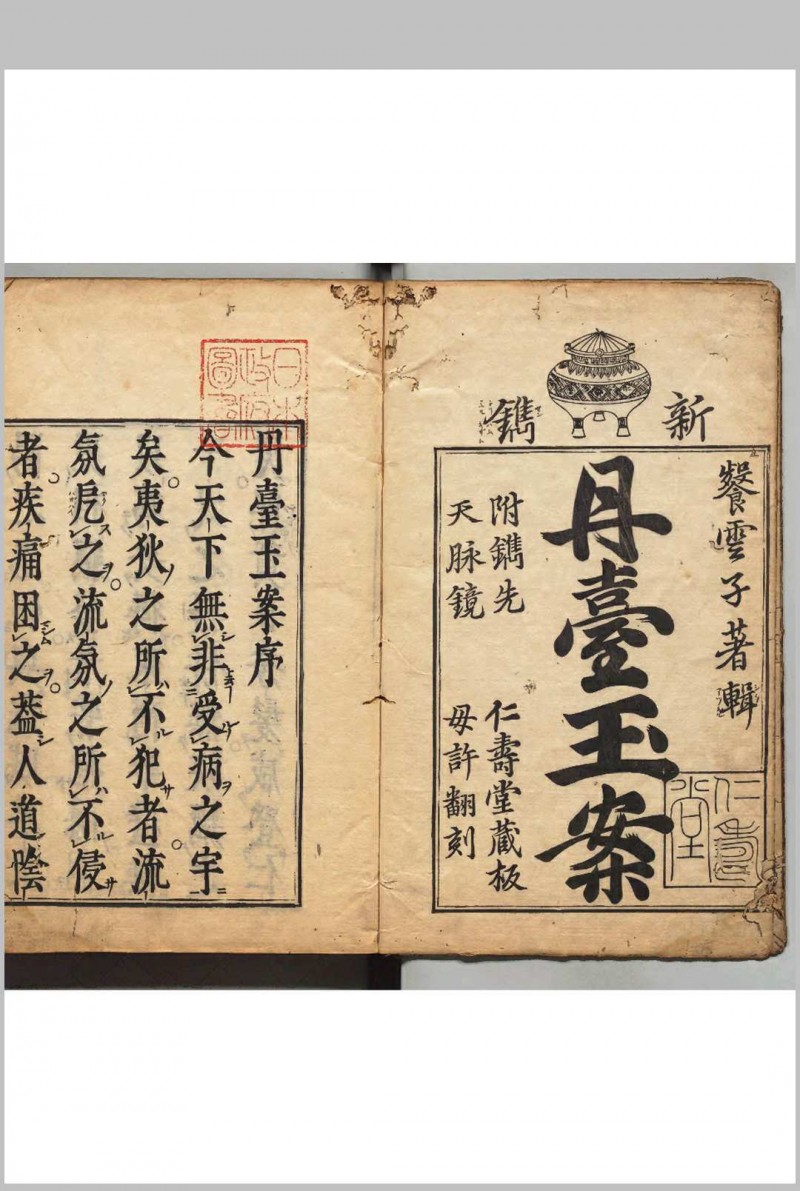 新鐫
餐雲子著輯
丹臺玉案
附鐫先
天脉鏡
仁壽堂藏板
毋許翻刻
仁壽堂
日本
政府
圖書
丹臺玉案序
今天下無非受病之宇
矣。夷狄之所不犯者。流
氛虐之。流氛之所不侵
者。疾痛困之。蓋人道陰